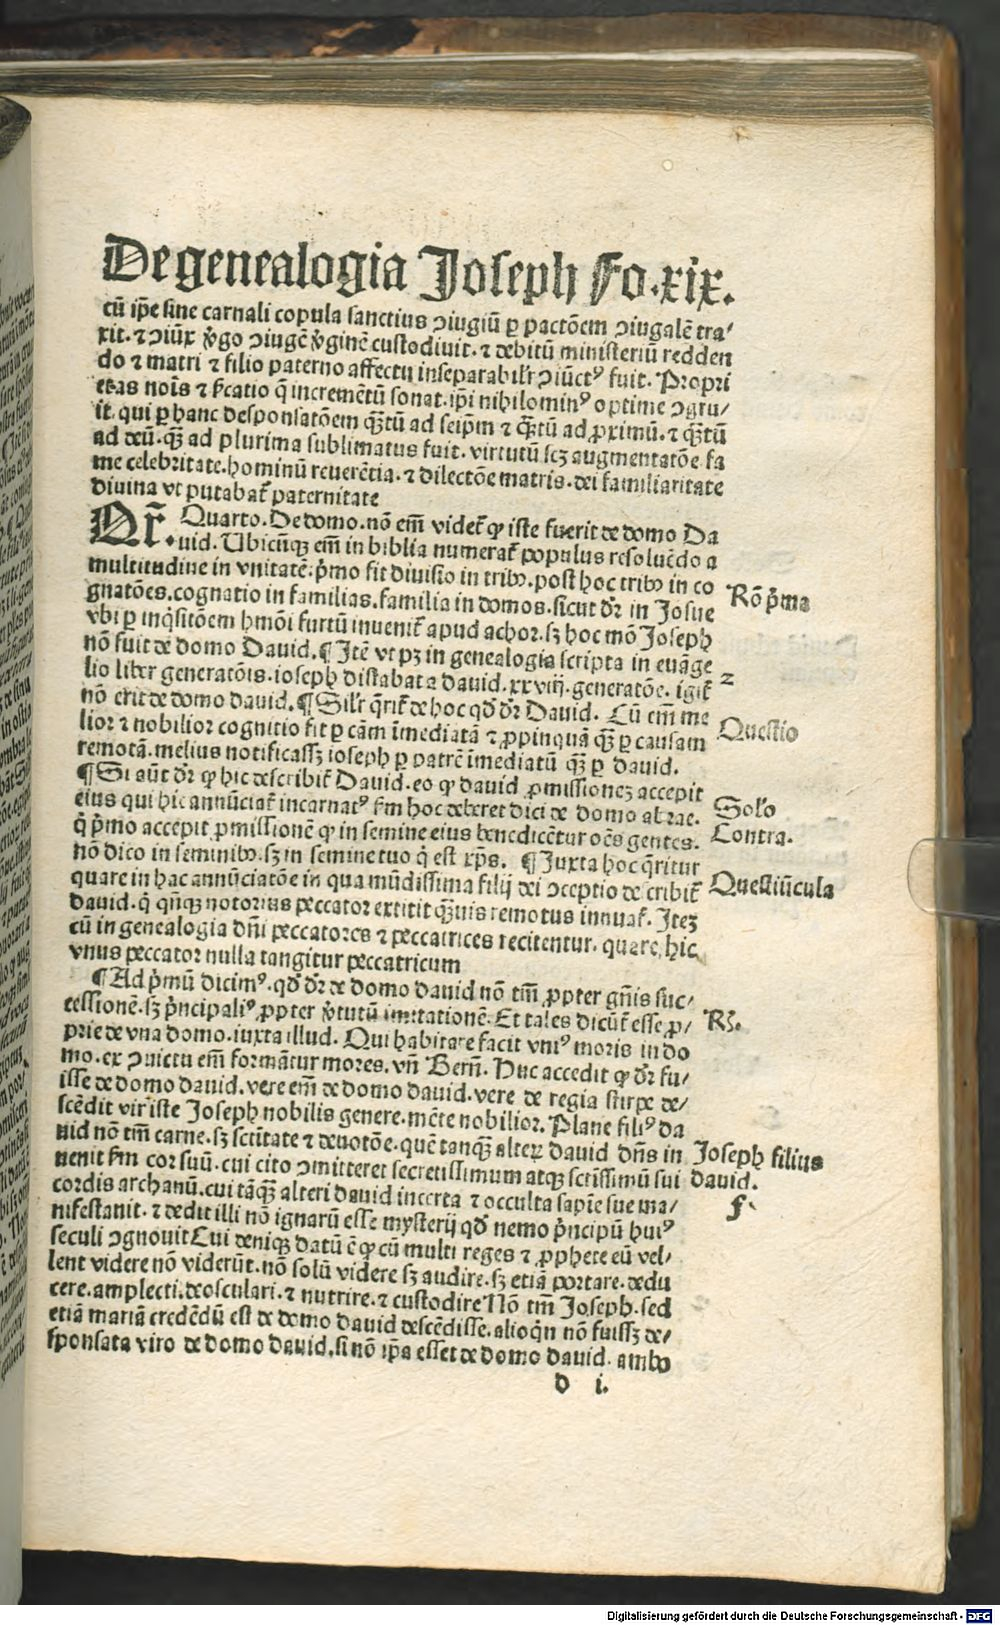 De genealogia Joseph Fo.xix.
cū ip̄e sine carnali copula sanctius ↄiugiū ꝑ pactōem ↄiugalē tra/
xit. ⁊ ↄiūx ꝟgo ↄiugē ꝟginē custodiuit. ⁊ debitū ministeriū redden
do ⁊ matri ⁊ filio paterno affectu inseparabilr̄ ↄiūctꝰ fuit. Propri
etas nōis ⁊ catio q̄ incremētū sonat. ip̄i nihilominꝰ optime ↄgru/
it. qui ꝑ hanc desponsatōem q̄ꝫtū ad seip̄m ⁊ q̄ꝫtū ad ꝓximū. ⁊ q̄ꝫtū
ad deū. q̄ꝫ ad plurima sublimatus fuit. virtutū scꝫ augmentatōe. fa
me celebritate. hominū reuerētia. ⁊ dilectōe matris. dei familiaritate
diuina vt putabat̄ paternitate
Qr̄. Quarto. De domo. nō em̄ videt̄ ꝙ iste fuerit de domo Da
uid. Ubicūqꝫ em̄ in biblia numerat̄ populus resoluēdo a
multitudine in vnitatē. p̄mo fit diuisio in tribꝰ. post hoc tribꝰ in co
gnatōes. cognatio in familias. familia in domos. sicut dr̄ in Josue
vbi ꝑ inq̇sitōem hmōi furtū inuenit̄ apud achor. sꝫ hoc mō Joseph
nō fuit de domo Dauid. ¶ Itē vt pꝫ in genealogia scripta in euāge
lio liber generatōis. ioseph distabat a dauid. xxviij. generatōe. igit̄
nō erit de domo dauid. ¶ Silr̄ q̄rit̄ de hoc qd̄ dr̄ Dauid. Cū em̄ me
lior ⁊ nobilior cognitio fit ꝑ cām īmediatā ⁊ ꝓpinquā q̄ꝫ ꝑ causam
remotā. melius notificassꝫ ioseph ꝑ patrē īmediatū q̄ꝫ ꝑ dauid.
¶ Si aūt dr̄ ꝙ hic describit̄ Dauid. eo ꝙ dauid ꝓmissionez accepit
eius qui hic annūciat̄ incarnatꝰ. fm̄ hoc deberet dici de domo abrae.
q̇ p̄mo accepit ꝓmissionē ꝙ in semine eius benedicētur oēs gentes.
nō dico in seminibꝰ. sꝫ in semine tuo q̇ est xp̄s. ¶ Juxta hoc q̄ritur
quare in hac annūciatōe in qua mūdissima filij dei ↄceptio describit̄
dauid. q̇ qn̄qꝫ notorius peccator extitit q̄ꝫuis remotus innuat̄. Itez
cū in genealogia dn̄i peccatores ⁊ peccatrices recitentur. quare hic
vnus peccator nulla tangitur peccatricum
¶ Ad p̄mū dicimꝰ. qd̄ dr̄ de domo dauid nō tm̄ ꝓpter gn̄is suc/
cessionē. sꝫ p̄ncipaliꝰ ꝓpter ꝟtutū imitationē. Et tales dicūt̄ esse ꝓ/
prie de vna domo. iuxta illud. Qui habitare facit vniꝰ moris in do
mo. ex ↄuictu em̄ formātur mores. vn̄ Bern̄. Huc accedit ꝙ dr̄ fu/
isse de domo dauid. vere em̄ de domo dauid. vere de regia stirpe de/
scēdit vir iste Joseph nobilis genere. mēte nobilior. Plane filiꝰ da
uid nō tm̄ carne. sꝫ sctītate ⁊ deuotōe. quē tanqꝫ̄ alteꝝ dauid dn̄s in
uenit fm̄ cor suū. cui cito ↄmitteret secretissimum atqꝫ sctīssimū sui
cordis archanū. cui tāqꝫ̄ alteri dauid incerta ⁊ occulta sapīe sue ma/
nifestauit. ⁊ dedit illi nō ignarū esse mysterij qd̄ nemo p̄ncipū huiꝰ
seculi ↄgnouit Cui deniqꝫ datū ē ꝙ cū multi reges ⁊ ꝓphete eū vel/
lent videre nō viderūt. nō solū videre sꝫ audire. sꝫ etiā portare. dedu
cere. amplecti. deosculari. ⁊ nutrire. ⁊ custodire Nō tm̄ Joseph. sed
etiā mariā credēdū est de domo dauid descēdisse. alioq̇n nō fuissꝫ de/
sponsata viro de domo dauid. si nō ip̄a esset de domo dauid. ambo
d i.
Rō p̄ma
2
Questio
Solo
Contra.
Questiūcula
Rn̄.
Joseph filius
dauid.
f.
Digitalisierung gefördert durch die Deutsche Forschungsgemeinschaft - DFG